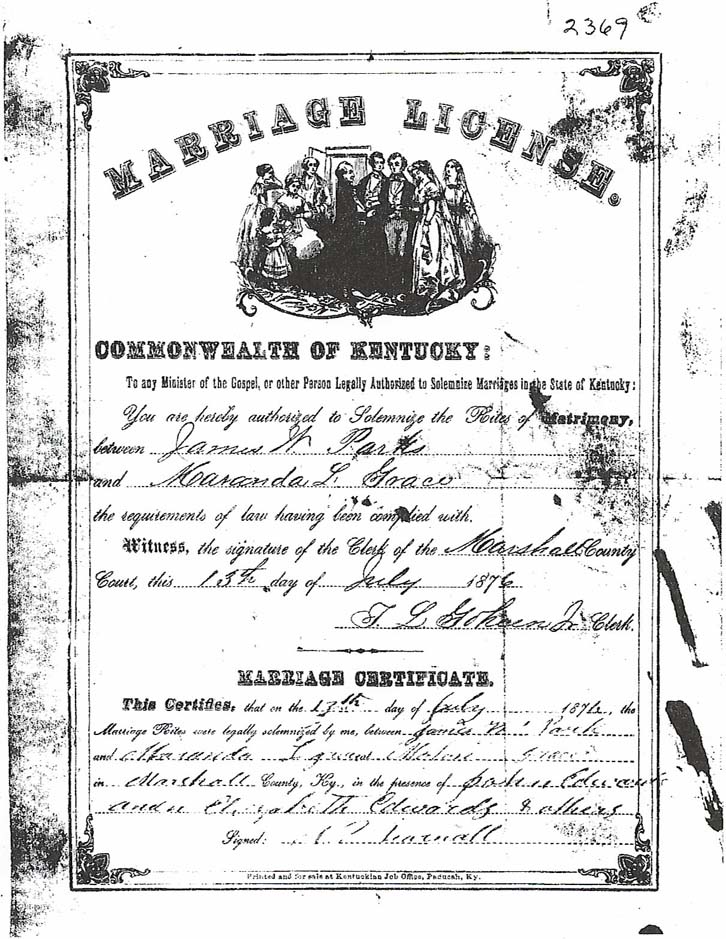 2369
MARRIAGE LICENSE.
COMMONWEALTH OF KENTUCKY:
To any Minister of the Gospel, or other Person Legally Authorized to Solemnize Marriages in the State of Kentucky:
You are hereby authorized to Solemnize the Rites of Matrimony,
between James W Parks
and Maranda L. Grace
the requirements of law having been complied with.
Witness, the signature of the Clerk of the Marshall County
Court, this 13th day of July 1876
T L Clerk.
MARRIAGE CERTIFICATE.
This Certifies, that on the 13th day of July 1876, the
Marriage Rites were legally solemnized by me, between James W Park
and Maranda
in Marshall County, Ky., in the presence of Edwards
Elizabeth Edwards & others
Signed:
Printed and for sale at Kentuckian Job Office, Paducah, Ky.